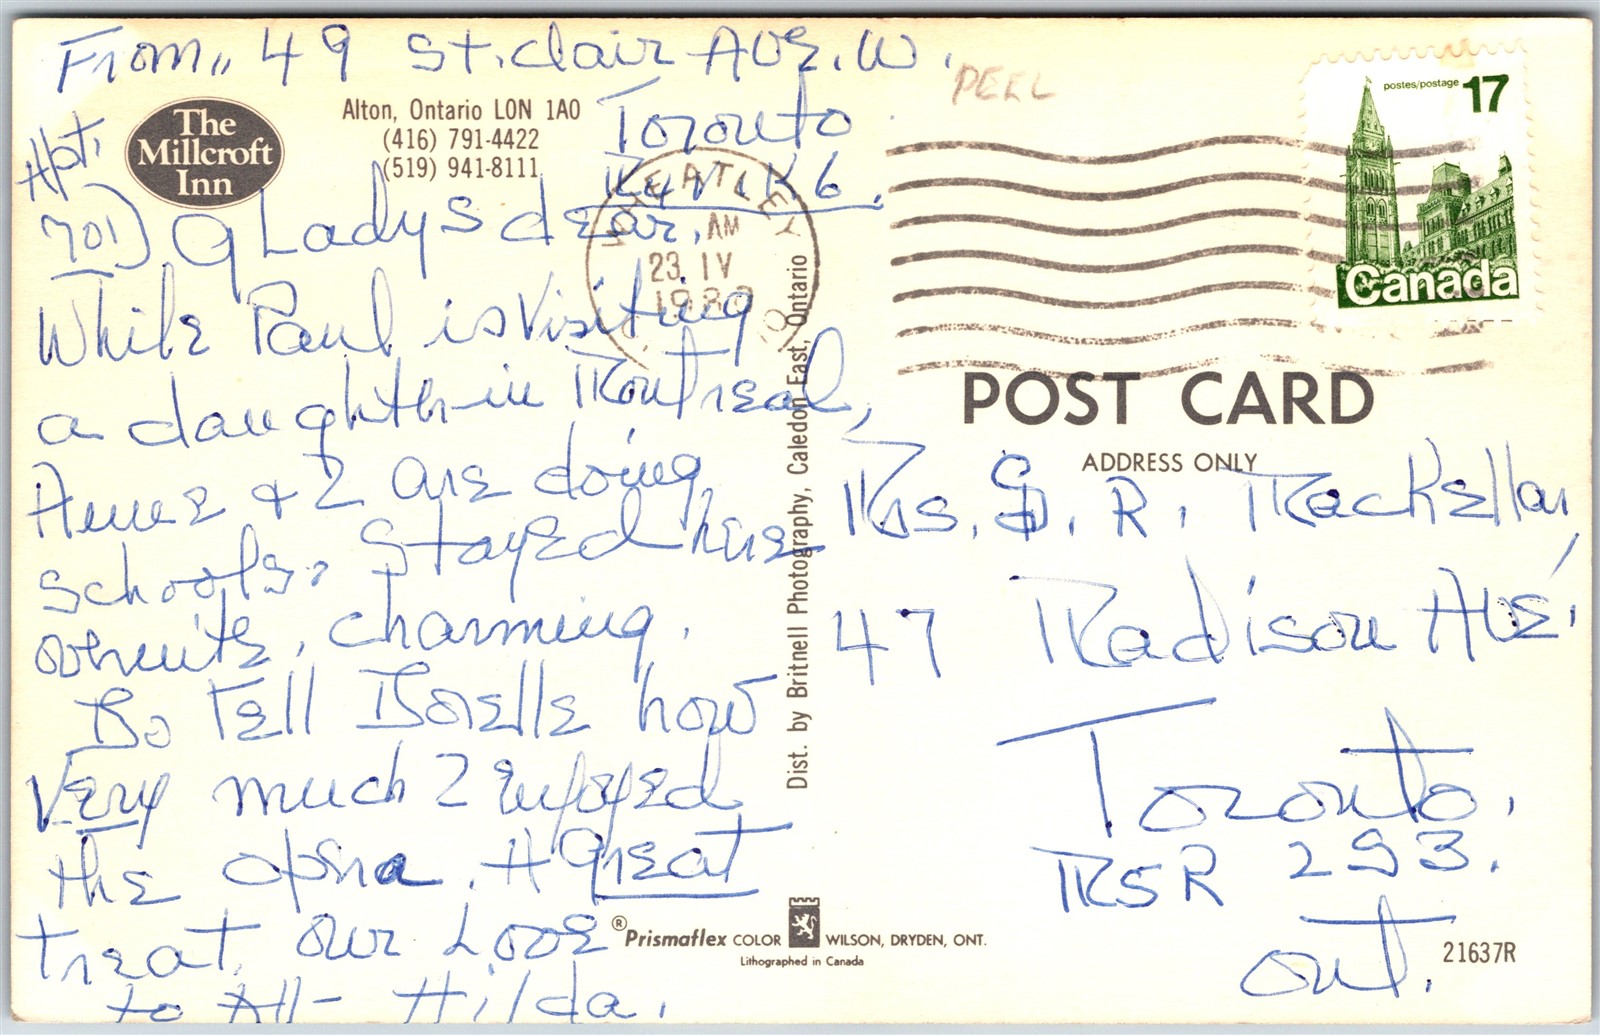 From,, 49 St. Clair Ave. W.
Apt. 701)
Toronto
M4V 1K6.
The
Millcroft
Inn
Alton, Ontario LON 1A0
(416) 791-4422
(519) 941-8111
Gladys dear,
While Paul is visiting
a daughter in Montreal,
Anne & I are doing
schools. Stayed here
overnite, charming.
Do tell Noelle how
very much I enjoyed
the opera. A great
treat. Our Love
to All - Hilda.
PEEL
WHEATLEY
AM
23 IV
ONT
postes/postage 17
Canada
POST CARD
ADDRESS ONLY
Mrs. G. R. MacKellar,
47 Madison Ave.
Toronto.
M5R 2S3.
Ont.
Dist. by Britnell Photography, Caledon East, Ontario
®Prismaflex COLOR WILSON, DRYDEN, ONT.
Lithographed in Canada
21637R